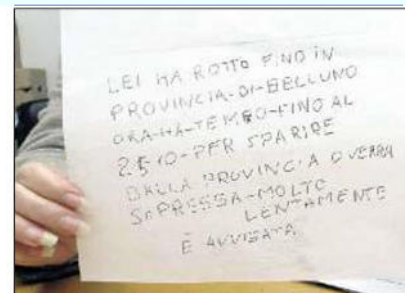 LEI HA ROTTO FINO IN
PROVINCIA-DI-BELLUNO
ORA-HA-TEMPO-FINO AL
25-10-PER SPARIRE
DALLA PROVINCIA O VERRA
SOPRESSA-MOLTO
LENTAMENTE
È AVVISATA